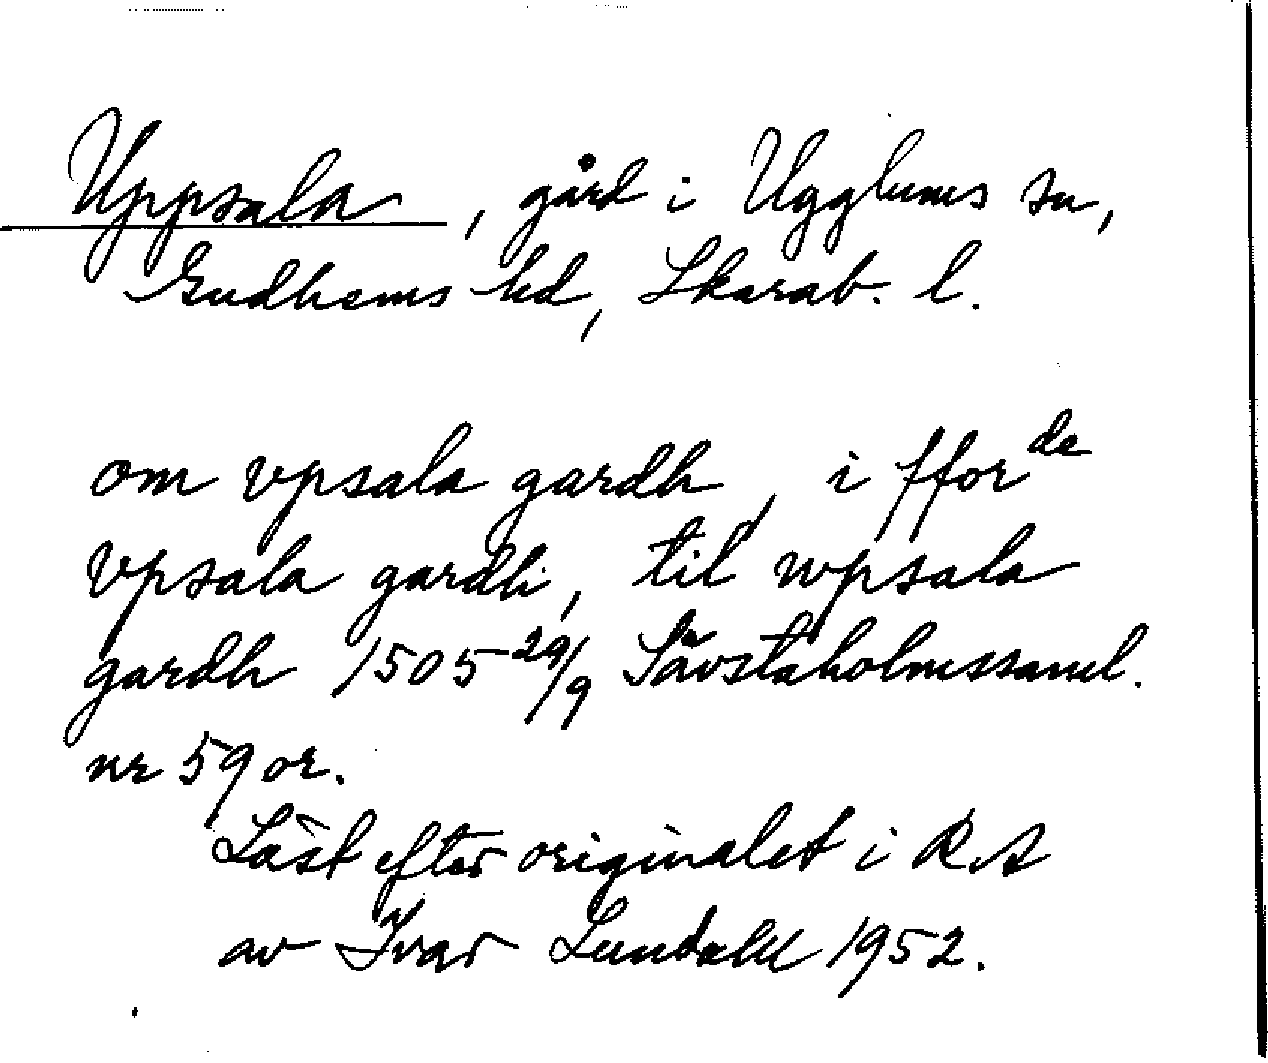 Uppsala, gård i Ugglums sn,
Gudhems hd, Skarab. l.
om vpsala gardh, i ffor de
vpsala gardh, til wpsala
gardh 1505 29/9 Sävstaholmssaml.
nr 59 or.
Läst efter originalet i RA
av Ivar Lundahl 1952.